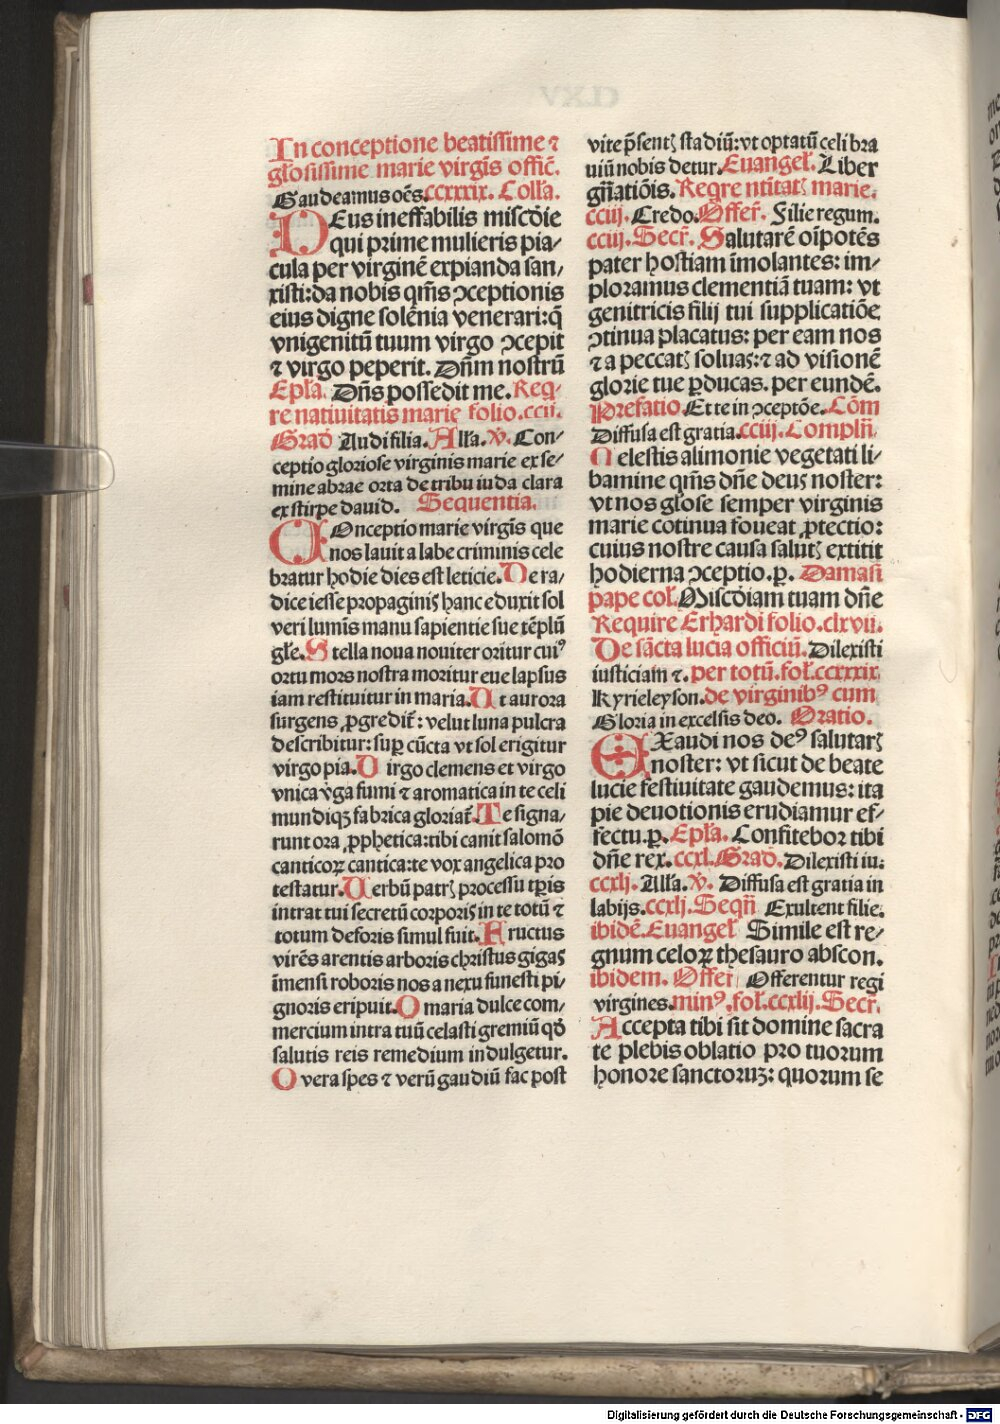 In conceptione beatissime ⁊
gło̅sissime marie virgi̅s offic̅.
Gaudeamus oe̅s.ccxxxix. Coll'a.
DEus ineffabilis misco̅ie
qui prime mulieris pia⸗
cula per virgine̅ expianda san⸗
xisti:da nobis qm̅s ꝯceptionis
eius digne sole̅nia venerari:q̅
vnigenitu̅ tuum virgo ꝯcepit
⁊ virgo peperit. Dn̅m nostru̅
Epl'a. Dn̅s possedit me. Req⸗
re natiuitatis marie folio.ccii.
Grad̅ Audi filia. All'a. v̅. Con⸗
ceptio gloriose virginis marie ex se⸗
mine abrae orta de tribu iuda clara
ex stirpe dauid. Sequentia.
COnceptio marie virgi̅s que
nos lauit a labe criminis cele
bratur hodie dies est leticie. De ra⸗
dice iesse propaginis hanc eduxit sol
veri lumi̅s manu sapientie sue te̅plu̅
gl'e. Stella noua nouiter oritur cuiꝰ
ortu mors nostra moritur eue lapsus
iam restituitur in maria. Ut aurora
surgens ꝓgredit̅: velut luna pulcra
describitur:sup̱ cu̅cta vt sol erigitur
virgo pia. Uirgo clemens et virgo
vnica v̅ga fumi ⁊ aromatica in te celi
mundiqꝫ fabrica gloriat̅. Te signa⸗
runt ora ꝓphetica:tibi canit salomo̅
canticoꝝ cantica:te vox angelica pro
testatur. Uerbu̅ patrꝭ processu tp̅is
intrat tui secretu̅ corporis in te totu̅ ⁊
totum deforis simul fuit. Fructus
vire̅s arentis arboris christus gigas
i̅mensi roboris nos a nexu funesti pi⸗
gnoris eripuit. O maria dulce com⸗
mercium intra tuu̅ celasti gremiu̅ qd̅
salutis reis remedium indulgetur.
O vera spes ⁊ veru̅ gaudiu̅ fac post
vite p̅sentꝭ stadiu̅:vt optatu̅ celi bra
uiu̅ nobis detur. Euangel'. Liber
gn̅atio̅is. Reqre nti̅tatꝭ marie.
cciij. Credo. Offer̅. Filie regum.
cciij. Secr̅. Salutare̅ oi̅pote̅s
pater hostiam i̅molantes: im⸗
ploramus clementia̅ tuam: vt
genitricis filij tui supplicatio̅e
ꝯtinua placatus: per eam nos
⁊ a peccatꝭ soluas:⁊ ad visione̅
glorie tue ꝑducas. per eunde̅.
Prefatio. Et te in ꝯcepto̅e. Co̅m
Diffusa est gratia. cciij. Compln̅.
Celestis alimonie vegetati li⸗
bamine qm̅s dn̅e deus noster:
vt nos gl'ose semper virginis
marie cotinua foueat ꝓtectio:
cuius nostre causa salutꝭ extitit
hodierna ꝯceptio.ꝑ. Damasi
pape col'. Misco̅iam tuam dn̅e
Require Erhardi folio.clxvii.
De sa̅cta lucia officiu̅. Dilexisti
iusticiam ⁊. per totu̅.fol'.ccxxxix
Kyrieleyson. de virginibꝰ cum
Gloria in excelsis deo. Oratio.
EXaudi nos deꝰ salutarꝭ
noster: vt sicut de beate
lucie festiuitate gaudemus: ita
pie deuotionis erudiamur ef⸗
fectu.ꝑ. Epl'a. Confitebor tibi
dn̅e rex. ccxl. Grad̅. Dilexisti iu:
ccxlj. All'a. v̅. Diffusa est gratia in
labijs. ccxlj. Seqn̅ Exultent filie.
ibide̅. Euangel' Simile est re⸗
gnum celoꝝ thesauro abscon.
ibidem. Offer̅ Offerentur regi
virgines. minꝰ. fol'.ccxlij. Secr̅.
Accepta tibi sit domine sacra
te plebis oblatio pro tuorum
honore sanctoruꝫ: quorum se
Digitalisierung gefördert durch die Deutsche Forschungsgemeinschaft - DFG